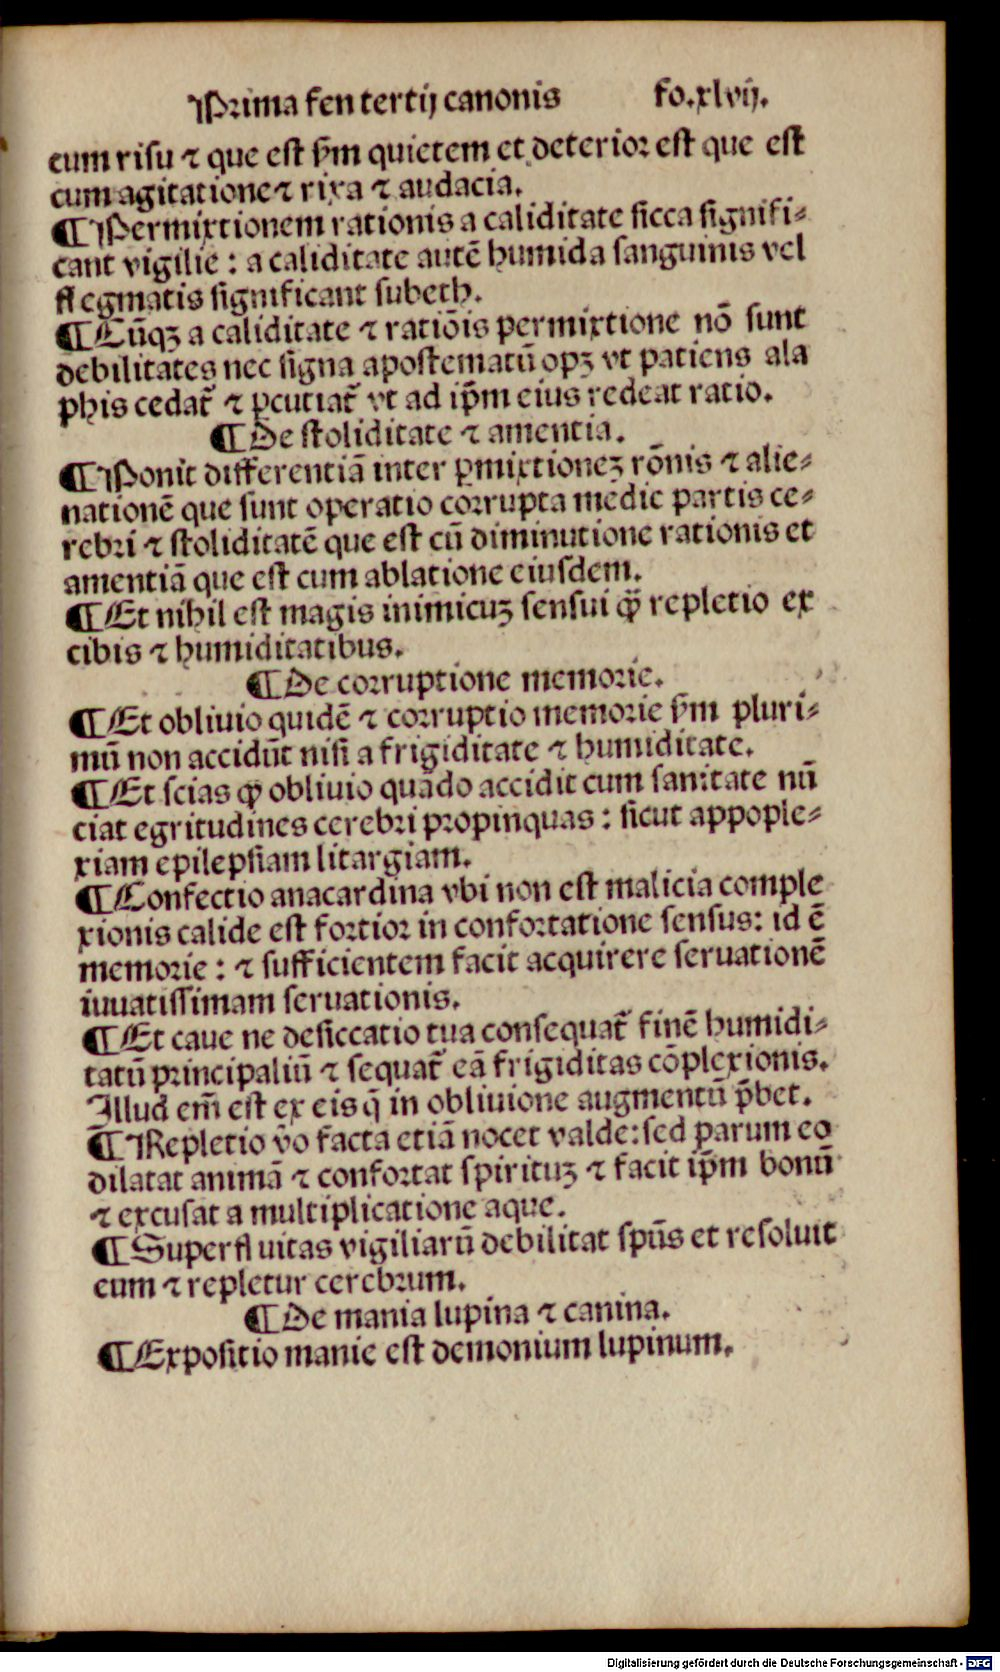 Prima fen tertij canonis fo.xlvij.
cum risu ⁊ que est ẜm quietem et deterior est que est
cum agitatione ⁊ rixa ⁊ audacia.
¶ Permixtionem rationis a caliditate sicca signifi⸗
cant vigilie : a caliditate autē humida sanguinis vel
flegmatis significant subeth.
¶ Cūqꝫ a caliditate ⁊ ratiōis permixtione nō sunt
debilitates nec signa apostematū opꝫ vt patiens ala
phis cedat᷑ ⁊ ꝑcutiat᷑ vt ad ip̄m eius redeat ratio.
¶ De stoliditate ⁊ amentia.
¶ Ponit differentiā inter ꝑmixtioneꝫ rōnis ⁊ alie⸗
nationē que sunt operatio corrupta medie partis ce⸗
rebri ⁊ stoliditatē que est cū diminutione rationis et
amentiā que est cum ablatione eiusdem.
¶ Et nihil est magis inimicuꝫ sensui ꝙ̄ repletio ex
cibis ⁊ humiditatibus.
¶ De corruptione memorie.
¶ Et obliuio quidē ⁊ corruptio memorie ẜm pluri⸗
mū non accidūt nisi a frigiditate ⁊ humiditate.
¶ Et scias ꝙ obliuio quādo accidit cum sanitate nū
ciat egritudines cerebri propinquas : sicut appople⸗
xiam epilepsiam litargiam.
¶ Confectio anacardina vbi non est malicia comple
xionis calide est fortior in confortatione sensus: id ē
memorie : ⁊ sufficientem facit acquirere seruationē
iuuatissimam seruationis.
¶ Et caue ne desiccatio tua consequat᷑ finē humidi⸗
tatū principaliū ⁊ sequat᷑ eā frigiditas cōplexionis.
Illud em̄ est ex eis q̄ in obliuione augmentū p̄bet.
¶ Repletio v̄o facta etiā nocet valde:sed parum eo
dilatat animā ⁊ confortat spirituꝫ ⁊ facit ip̄m bonū
⁊ excusat a multiplicatione aque.
¶ Superfluitas vigiliarū debilitat sp̄us et resoluit
eum ⁊ repletur cerebrum.
¶ De mania lupina ⁊ canina.
¶ Expositio manie est demonium lupinum.
Digitalisierung gefördert durch die Deutsche Forschungsgemeinschaft - DFG